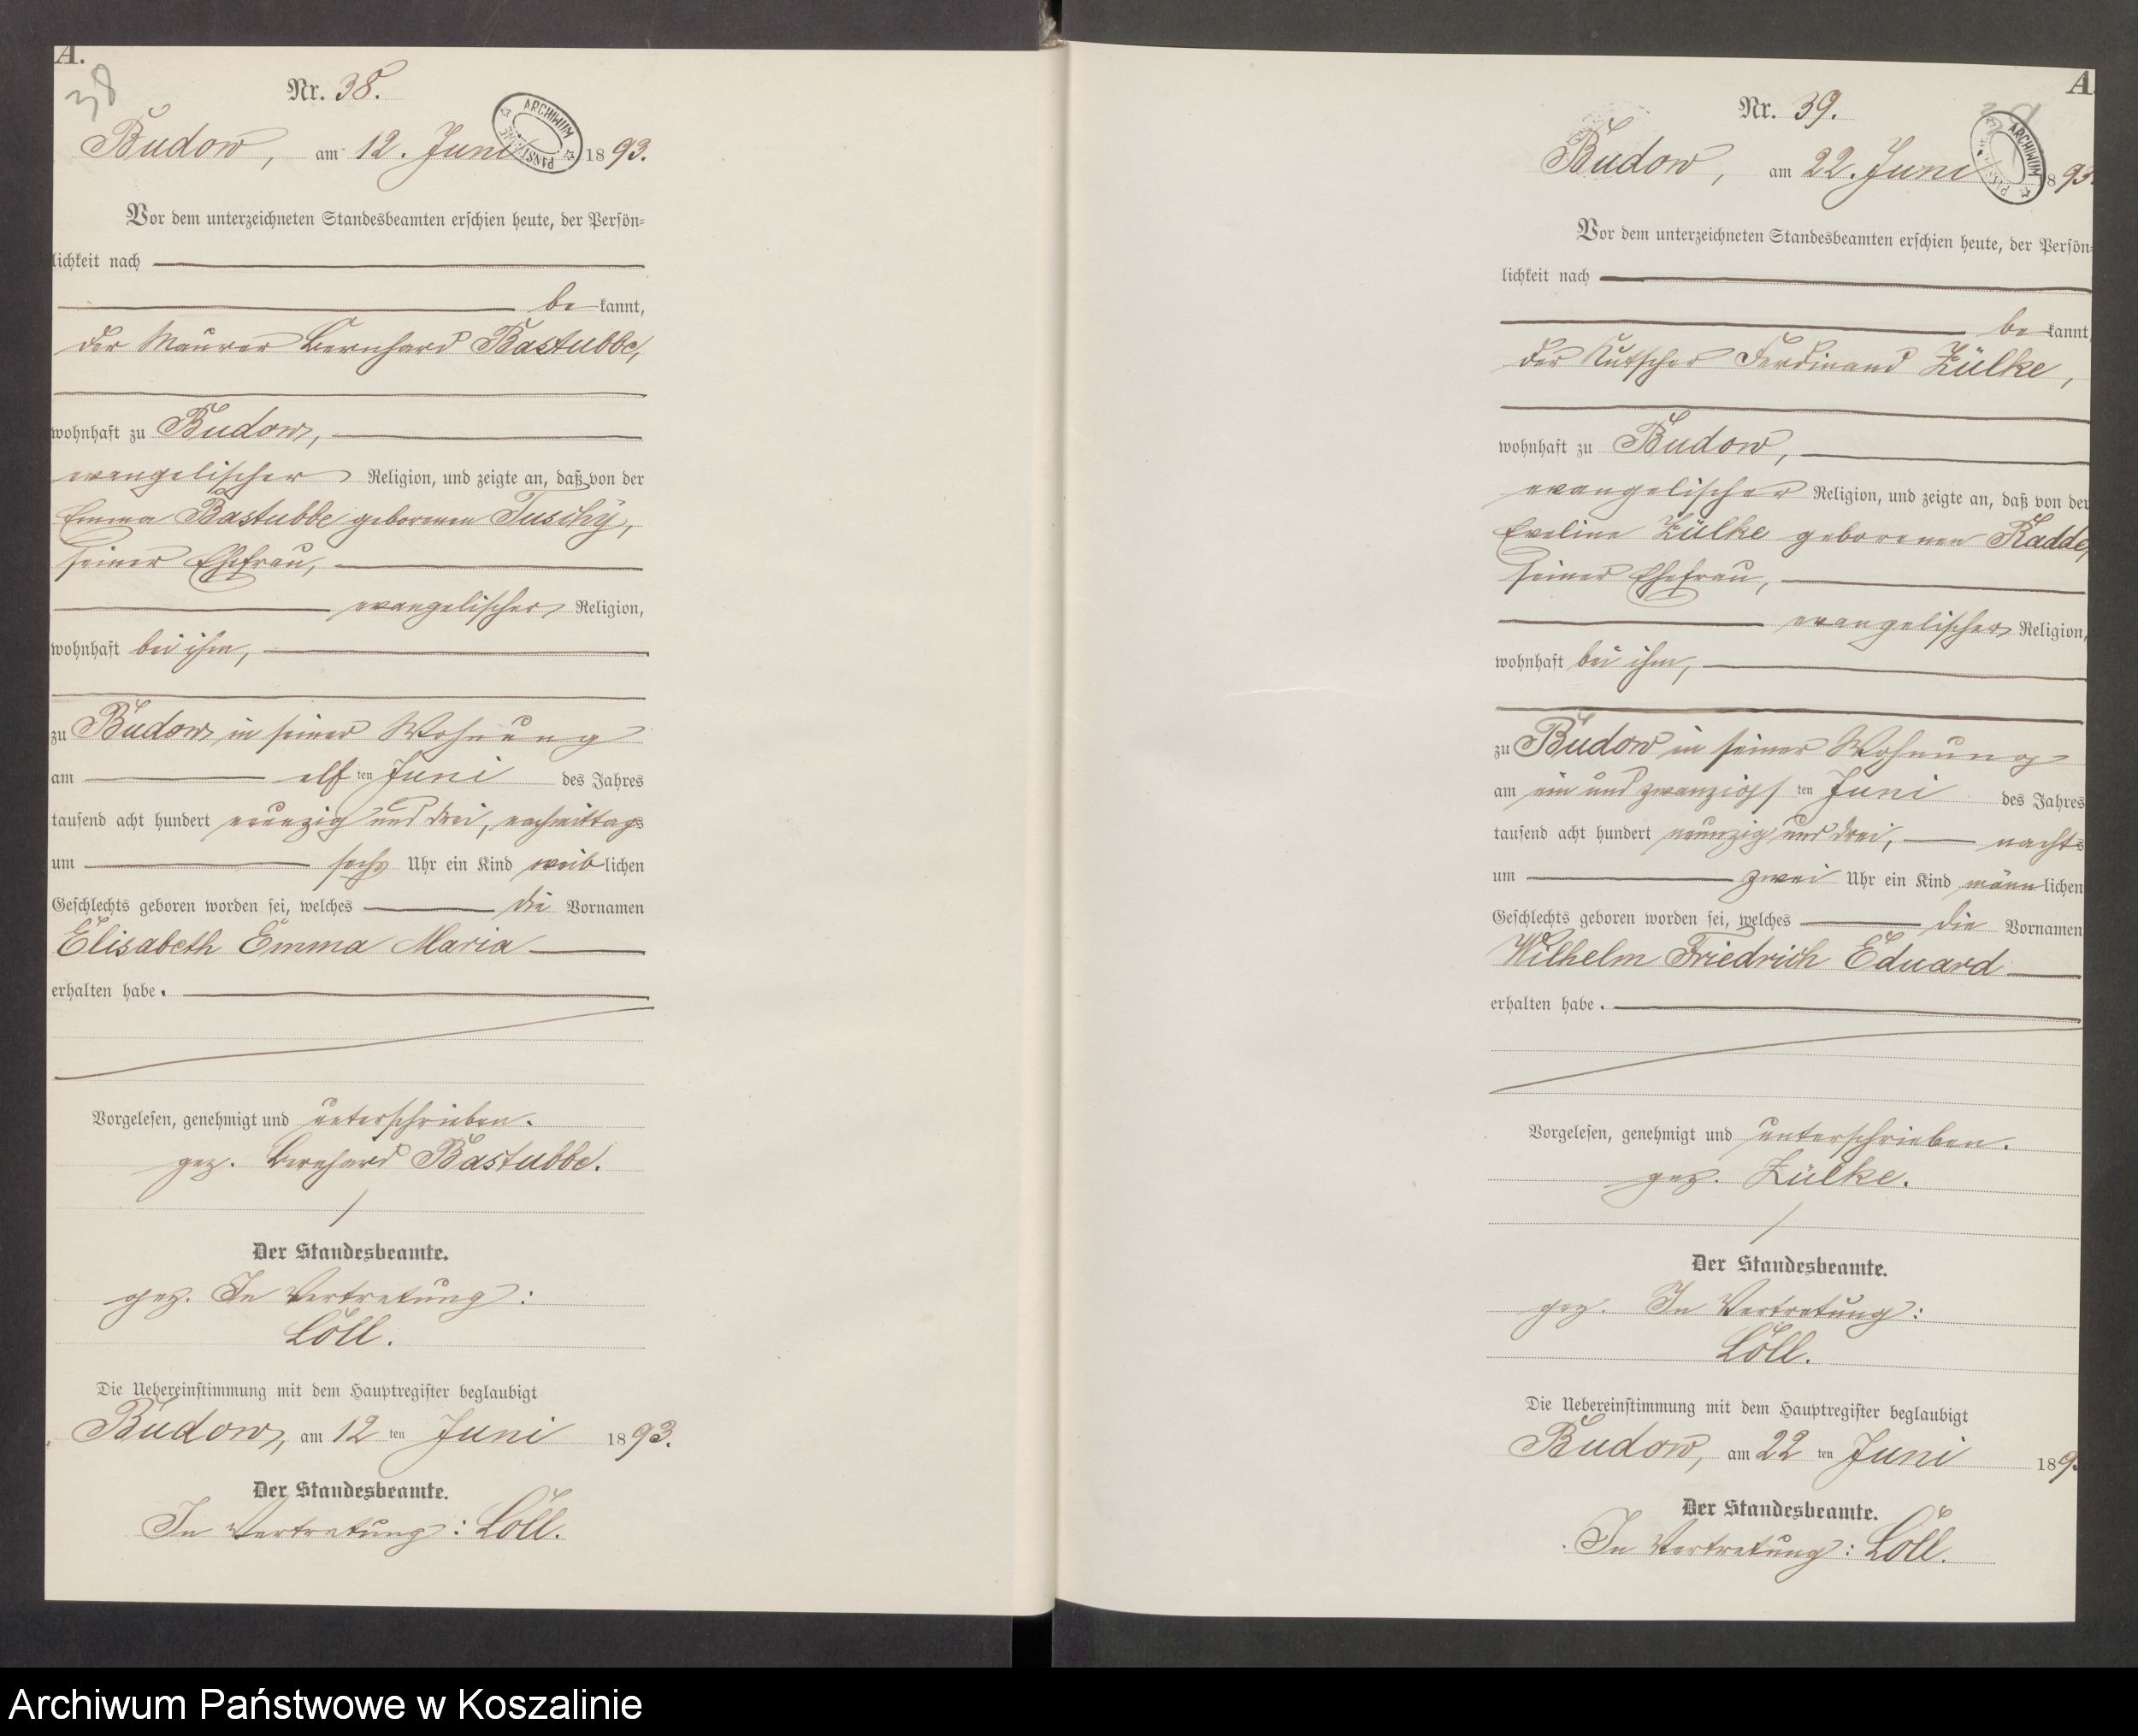 A.
38
Nr. 38.
ARCHIWUM
Budow, am 12. Juni 1893.
Vor dem unterzeichneten Standesbeamten erschien heute, der Persön-
lichkeit nach
be kannt,
der Maurer Bernhard Bastubbe,
wohnhaft zu Budow,
evangelischer Religion, und zeigte an, daß von der
Emma Bastubbe geborenen Tuschy,
seiner Ehefrau,
evangelischer Religion,
wohnhaft bei ihm,
zu Budow in seiner Wohnung
am elf ten Juni des Jahres
tausend acht hundert neunzig und drei, nachmittags
um sechs Uhr ein Kind weib lichen
Geschlechts geboren worden sei, welches die Vornamen
Elisabeth Emma Maria
erhalten habe.
Vorgelesen, genehmigt und unterschrieben.
gez. Bernhard Bastubbe.
Der Standesbeamte.
gez. In Vertretung:
Löll.
Die Uebereinstimmung mit dem Hauptregister beglaubigt
Budow, am 12 ten Juni 1893.
Der Standesbeamte.
In Vertretung: Löll.
A.
Nr. 39.
ARCHIWUM
Budow, am 22. Juni 1893.
Vor dem unterzeichneten Standesbeamten erschien heute, der Persön-
lichkeit nach
be kannt,
der Kutscher Ferdinand Zülke,
wohnhaft zu Budow,
evangelischer Religion, und zeigte an, daß von der
Eveline Zülke geborenen Radde,
seiner Ehefrau,
evangelischer Religion,
wohnhaft bei ihm,
zu Budow in seiner Wohnung
am ein und zwanzigs ten Juni des Jahres
tausend acht hundert neunzig und drei, nachts
um zwei Uhr ein Kind männ lichen
Geschlechts geboren worden sei, welches die Vornamen
Wilhelm Friedrich Eduard
erhalten habe.
Vorgelesen, genehmigt und unterschrieben.
gez. Zülke.
Der Standesbeamte.
gez. In Vertretung:
Löll.
Die Uebereinstimmung mit dem Hauptregister beglaubigt
Budow, am 22 ten Juni 189
Der Standesbeamte.
In Vertretung: Löll.
Archiwum Państwowe w Koszalinie